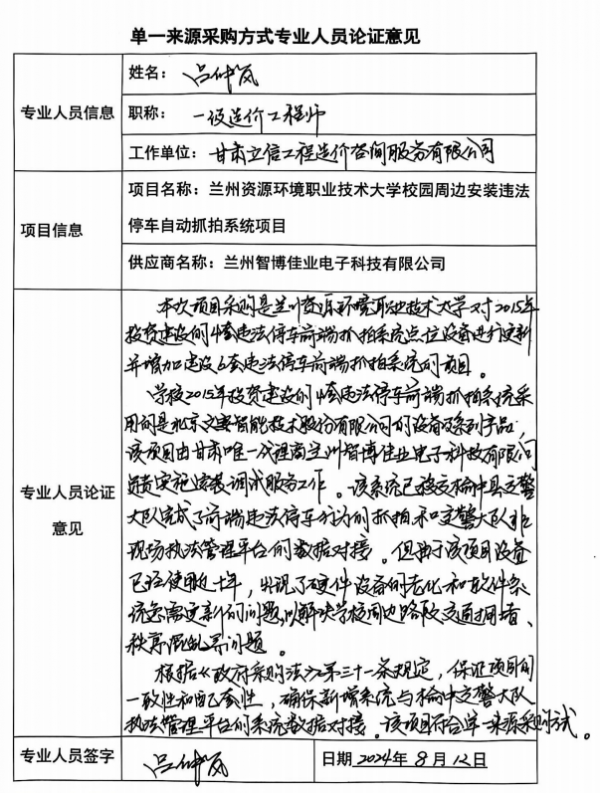 单一来源采购方式专业人员论证意见
专业人员信息
姓名：吕仲岚
职称：一级造价工程师
工作单位：甘肃立信工程造价咨询服务有限公司
项目信息
项目名称：兰州资源环境职业技术大学校园周边安装违法
停车自动抓拍系统项目
供应商名称：兰州智博佳业电子科技有限公司
专业人员论证
意见
本次项目采购是兰州资源环境职业技术大学对2015年
投资建设的4套违法停车前端抓拍系统点位设备进行更新
并增加建设6套违法停车前端抓拍系统的项目。
学校2015年投资建设的4套违法停车前端抓拍系统采
用的是北京文安智能技术股份有限公司的设备及系列产品，
该项目由甘肃唯一代理商兰州智博佳业电子科技有限公司
负责实施安装调试服务工作。该系统已移交榆中县交警
大队完成了前端违法停车行为的抓拍和交警大队非
现场执法管理平台的数据对接。但由于该项目设备
已经使用近十年，出现了硬件设备的老化和软件系
统急需更新的问题，以解决学校周边路段交通拥堵、
秩序混乱等问题。
根据《政府采购法》第三十一条规定，保证项目的
一致性和配套性，确保新增系统与榆中交警大队
执法管理平台的系统数据对接。该项目符合单一来源采购方式。
专业人员签字
吕仲岚
日期 2024年8月12日